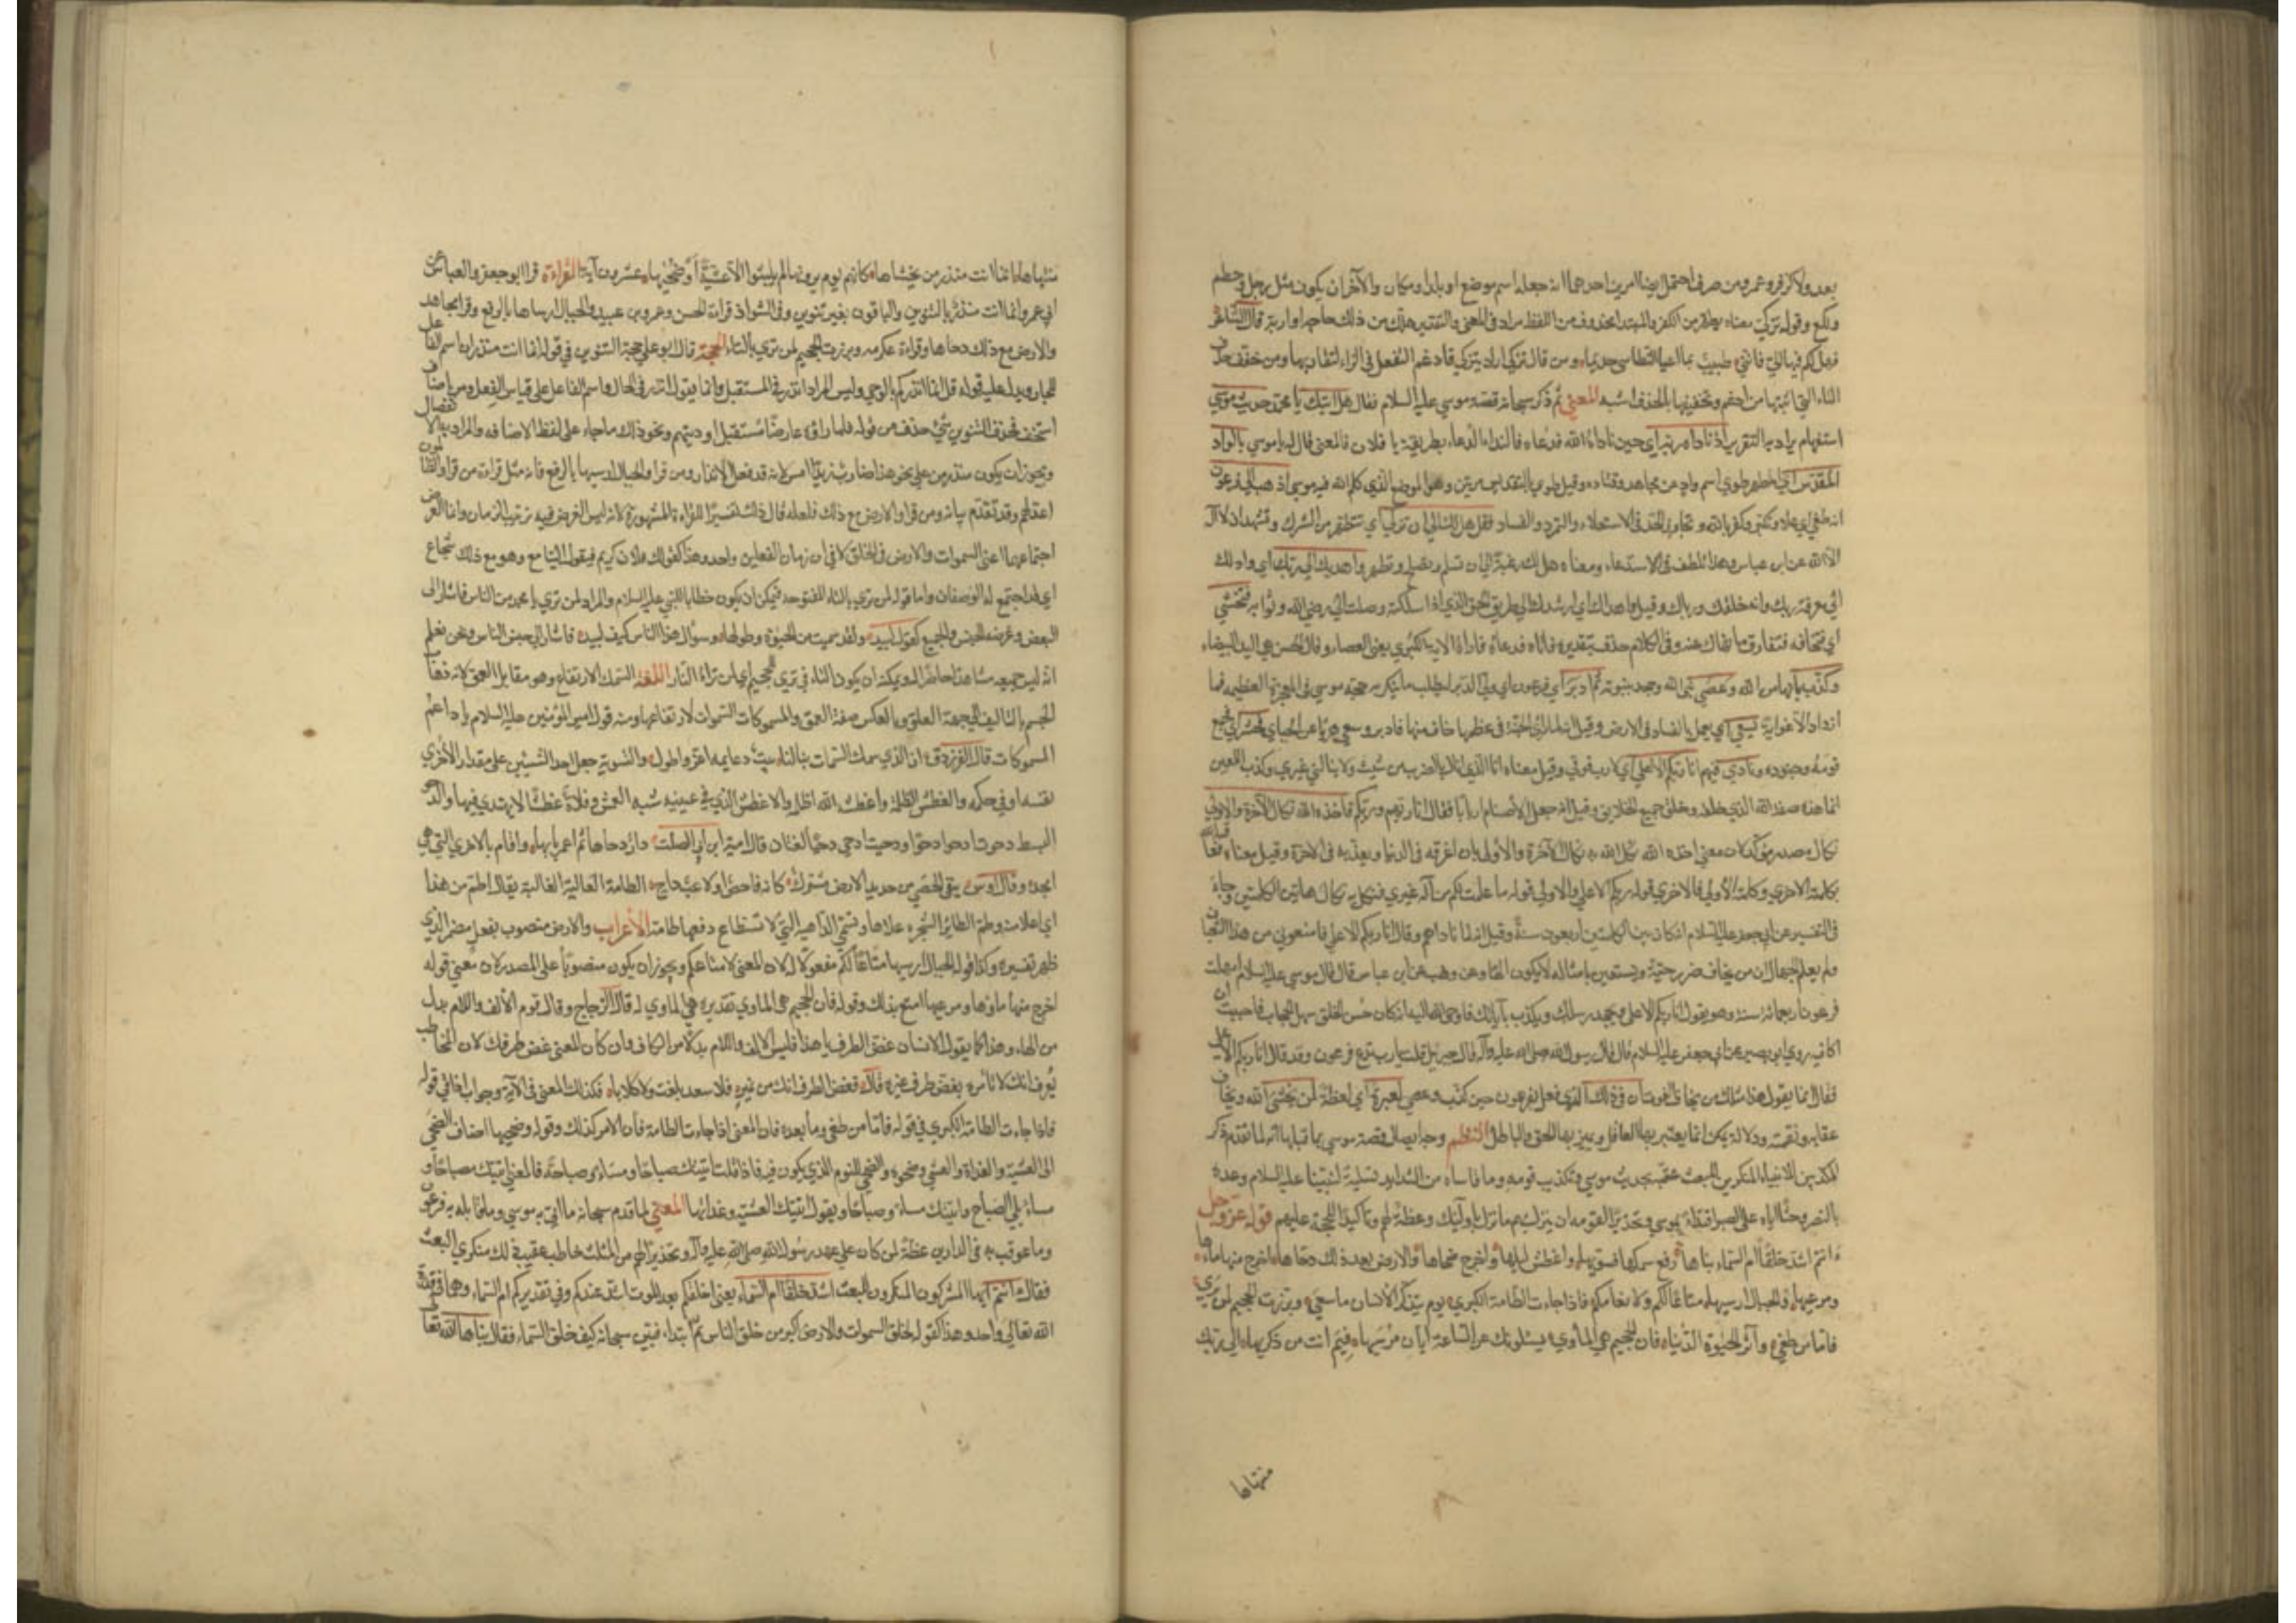 بعد ولا كزفر وعمر ومن صرف احتمل ايضا امرين احدهما انه جعله اسم موضع او بلد او مكان والآخر ان يكون مثل رجل وحطم
ولكع وقوله تزكى معناه يطهر من الكفر والمبتدا محذوف من اللفظ مراد في المعنى والتقدير هل لك من ذلك حاجه او اربة قال الشاعر
فهل لكم فيها الي فانني طبيب بما اعيا النطاسي حذيما ومن قال تزكى اراد يتزكى فادغم التفعل في الزاء لتقاربهما ومن خفف حذف
التاء التي اثبتها من ادغم وتخفيفها بالحذف اشبه المعنى ثم ذكر سبحانه قصة موسى عليه السلام فقال هل اتيك يا محمد حديث موسى
استفهام يراد به التقرير اذ ناداه ربه اي حين ناداه الله فدعاه فالنداء الدعاء بطريقة يا فلان فالمعنى قال له يا موسى بالواد
المقدس اي المطهر طوى اسم واد عن مجاهد وقتاده وقيل طوى بالتقديس مرتين وهو الموضع الذي كلم الله فيه موسى اذهب الى فرعون
انه طغى اي علا وتكبر وكفر بالله وتجاوز الحد في الاستعلاء والتمرد والفساد فقل هل لك الى ان تزكى اي تتطهر من الشرك وتشهد ان لا اله
الا الله عن ابن عباس وهذا تلطف في الاستدعاء ومعناه هل لك رغبة الى ان تسلم وتصلح وتطهر واهديك الى ربك اي وادلك
الى معرفة ربك وانه خلقك ورباك وقيل واهديك اي ارشدك الى طريق الحق الذي اذا سلكته وصلت الى رضي الله وثوابه فتخشى
اي فتخافه فتفارق ما نهاك عنه وفي الكلام حذف تقديره فاتاه فدعاه فاراه الاية الكبرى يعني العصا وقال الحسن هي اليد البيضاء
وكذب بانها من الله وعصى نبي الله وجحد بنبوته ثم ادبر اي فرعون اي ولى الدبر ليطلب ما يكسر به حجة موسى في المعجزة العظيمه فما
ازداد الا غواية يسعى اي يعمل بالفساد في الارض وقيل انه لما راى الحية في عظمها خاف منها فادبر وسعى هربا عن الجبائي فحشر اي فجمع
قومه وجنوده ونادى فيهم انا ربكم الاعلى اي لا رب فوقي وقيل معناه انا الذي انال بالضرر من شئت ولا ينالني غيري وكذب اللعين
انما هذه صفة الله الذي خلقه وخلق جميع الخلايق وقيل انه جعل الاصنام اربابا فقال انا ربهم وربكم فاخذه الله نكال الآخرة والاولى
نكال مصدر موكد لان معنى اخذه الله نكل الله به نكال الآخرة والأولى بان اغرقه في الدنيا ويعذبه في الاخرة وقيل معناه فعاقبه الله
بكلمته الاخرى وكلمته الأولى فالاخرى قوله انا ربكم الاعلى والاولى قوله ما علمت لكم من اله غيري فنكل به نكال هاتين الكلمتين وجاء
في التفسير عن ابي جعفر عليه السلام انه كان بين الكلمتين اربعون سنة وقيل انه لما ناداهم وقال انا ربكم الاعلى فامنعوني من هذا الثعبان
ولم يعلم الجهال ان من يخاف ضرر حية ويستعين بامثاله لا يكون الها وعن وهب عن ابن عباس قال قال موسى عليه السلام امهلت
فرعون اربعمائة سنة وهو يقول انا ربكم الاعلى ويجحد رسلك ويكذب باياتك فاوحى الله اليه انه كان حسن الخلق سهل الحجاب فاحببت ان
اكافيه وروى ابو بصير عن ابي جعفر عليه السلام قال قال رسول الله صلى الله عليه وآله قال جبرئيل قلت يا رب تدع فرعون وقد قال انا ربكم الاعلى
فقال انما يقول هذا مثلك من يخاف الفوت ان في ذلك الذي فعل بفرعون حين كذب وعصى لعبرة اي لعظة لمن يخشى الله ويخاف
عقابه ونقمته ودلالة يمكن انما يعتبر بها العاقل ويميز بها الحق والباطل النظم وجه اتصال قصة موسى بما قبلها انه لما تقدم ذكر
المكذبين للانبياء المنكرين للبعث عقبه بحديث موسى وتكذيب قومه وما قاساه من الشدايد تسلية لنبينا عليه السلام وعده
بالنصر وحثا اياه على الصبر اقتداء بموسى وتحذيرا لقومه ان ينزل بهم ما نزل باولئك وعظة لهم وتاكيدا للحجة عليهم قوله عز وجل
ءانتم اشد خلقا ام السماء بناها رفع سمكها فسويها واغطش ليلها واخرج ضحاها والارض بعد ذلك دحاها اخرج منها ماءها
ومرعيها والجبال ارسيها متاعا لكم ولانعامكم فاذا جاءت الطامة الكبرى يوم يتذكر الانسان ما سعى وبرزت الجحيم لمن يرى
فاما من طغى وآثر الحيوة الدنيا فان الجحيم هي المأوى يسئلونك عن الساعة ايان مرسيها فيم انت من ذكريها الى ربك
منتهاها
منتهاها انما انت منذر من يخشاها كانهم يوم يرونها لم يلبثوا الا عشية او ضحيها عشرون آية القراءة قرا ابو جعفر والعباس عن
ابي عمرو انما انت منذر بالتنوين والباقون بغير تنوين وفي الشواذ قراءة الحسن وعمرو بن عبيد والجبال ارساها بالرفع وقرا مجاهد
والارض مع ذلك دحاها وقراءة عكرمه وبرزت الجحيم لمن ترى بالتاء الحجة قال ابو علي حجة التنوين في قوله انما انت منذر ان اسم الفاعل
للحال ويدل عليه قوله قل انما انذركم بالوحي وليس المراد انذر في المستقبل وانما يقول انذر في الحال واسم الفاعل على قياس الفعل ومن اضاف
استخف فحذف التنوين كما حذف من قوله فلما راوه عارضا مستقبل اوديتهم ونحو ذلك مما جاء على لفظ الاضافه والمراد به الانفصال
ويجوز ان يكون منذر من على نحو هذا ضارب زيد امس لانه قد فعل الانذار ومن قرا والجبال ارسيها بالرفع فانه مثل قراءة من قرا والظالمون
اعد لهم وقد تقدم بيانه ومن قرا والارض مع ذلك فلعله قال ذلك تفسيرا للقراءة المشهورة لانه ليس الغرض فيه ترتيب الزمان وانما الغرض
اجتماعهما اعني السموات والارض في الخلق لا في ان زمان الفعلين واحد وهذا كقولك فلان كريم فيقول السامع وهو مع ذلك شجاع
اي قد اجتمع له الوصفان واما قوله لمن ترى بالتاء المفتوحه فيمكن ان يكون خطابا للنبي عليه السلام والمراد لمن ترى يا محمد من الناس فاشار الى
البعض وغرضه الجنس والجميع كقول لبيد ولقد سئمت من الحيوة وطولها وسؤال هذا الناس كيف لبيد فاشار الى جنس الناس ونحن نعلم
انه ليس جميعه مشاهدا حاضرا له ويمكنه ان يكون التاء في ترى للجحيم اي لمن تراه النار اللغة السمك الارتفاع وهو مقابل العمق لانه ذهاب
الجسم بالتاليف الى جهة العلو وبالعكس صفة العمق والمسموكات السموات لارتفاعها ومنه قول امير المؤمنين عليه السلام يا داعم
المسموكات قال الفرزدق ان الذي سمك السماء بنا لنا بيتا دعايمه اعز واطول والتسوية جعل احد الشيئين على مقدار الاخرى
نفسه او في حكمه والغطش الظلمة واغطشه الله اظلمه والاغطش الذي في عينيه شبه العمش وفلاة غطشا لا يهتدى فيها والدحو
البسط دحوت ادحو دحوا ودحيت ادحي دحيا لغتان قال امية ابن ابي الصلت دار دحاها ثم اعمر بابها واقام بالاخرى التي هي
امجد وقال اوس ينفي الحصى عن جديد الارض مبترك كانه فاحص او لاعب داح الطامة العالية الغالبة يقال اطم من هذا
اي اعلا منه وطم الطائر الشجرة علاها وتسمى الداهية التي لا تستطاع دفعها طامة الأعراب والارض منصوب بفعل مضمر الذي
ظهر تفسيره وكذا قوله والجبال ارسيها متاعا لكم مفعول له لان المعنى لامتاعكم ويجوز ان يكون منصوبا على المصدر لان معنى قوله
اخرج منها ماءها ومرعيها امتع بذلك وقوله فان الجحيم هي الماوى تقديره هي الماوى له قال الزجاج وقال قوم الالف واللام بدل
من الهاء وهذا كما يقول الانسان غض الطرف يا هذا فليس الالف واللام بدلا من الكاف وان كان المعنى غض طرفك لان المخاطب
يعرف انك لا تامره بغض طرف غيره قال فغض الطرف انك من نمير فلا سعد بلغت ولا كلابا فكذلك المعنى في الآية وجواب اذا في قوله
فاذا جاءت الطامة الكبرى في قوله فاما من طغى وما بعده فان المعنى اذا جاءت الطامة فان الامر كذلك وقوله وضحيها اضاف الضحى
الى العشية والغداة والعشي وضحوة والضحى لليوم الذي يكون فيه فاذا قلت اتيتك صباحا ومساء وصباحه فالمعنى اتيتك صباحا و
مساء يلي الصباح واتيتك مساء وصباحا ويقول اتيتك العشية وغداتها المعنى لما قدم سبحانه ما اتى به موسى وما قابله به فرعون
وما عوقب به في الدارين عظة لمن كان على عهد رسول الله صلى الله عليه وآله وتحذيرا لهم من المثلات خاطب عقيب ذلك منكري البعث
فقال ءانتم ايها المشركون المنكرون للبعث اشد خلقا ام السماء يعني اخلقكم بعد الموت اشد عندكم وفي تقديركم ام السماء وهما في قدرة
الله تعالى واحد وهذا كقوله لخلق السموات والارض اكبر من خلق الناس ثم ابتداء فبين سبحانه كيف خلق السماء فقال بناها الله تعالى